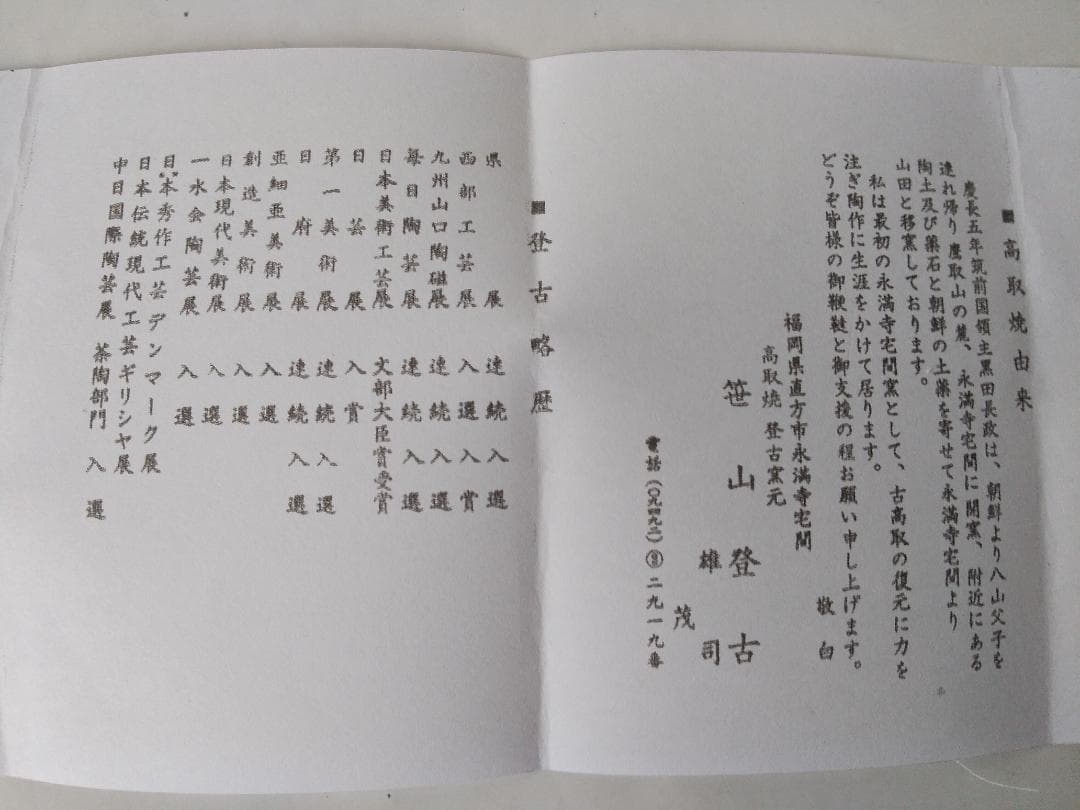 ■高取焼由来
慶長五年筑前国領主黒田長政は、朝鮮より八山父子を
連れ帰り鷹取山の麓、永満寺宅間に開窯、附近にある
陶土及び薬石と朝鮮の土薬を寄せて永満寺宅間より
山田と移窯しております。
私は最初の永満寺宅間窯として、古高取の復元に力を
注ぎ陶作に生涯をかけて居ります。
どうぞ皆様の御鞭韃と御支援の程お願い申し上げます。
敬白
福岡県直方市永満寺宅間
高取焼 登古窯元
笹山登古
雄司
茂
電話(〇九四九二)二九一九番
■登古略歴
県展 連続入選
西部工芸展 入選入賞
九州山口陶磁展 連続入選
毎日陶芸展 連続入選
日本美術工芸展 文部大臣賞受賞
日芸展 入賞
第一美術展 連続入選
日府展 連続入選
亜細亜美術展 入選
創造美術展 入選
日本現代美術展 入選
一水会陶芸展 入選
日本秀作工芸デンマーク展
日本伝統現代工芸ギリシヤ展
中日国際陶芸展 茶陶部門 入選